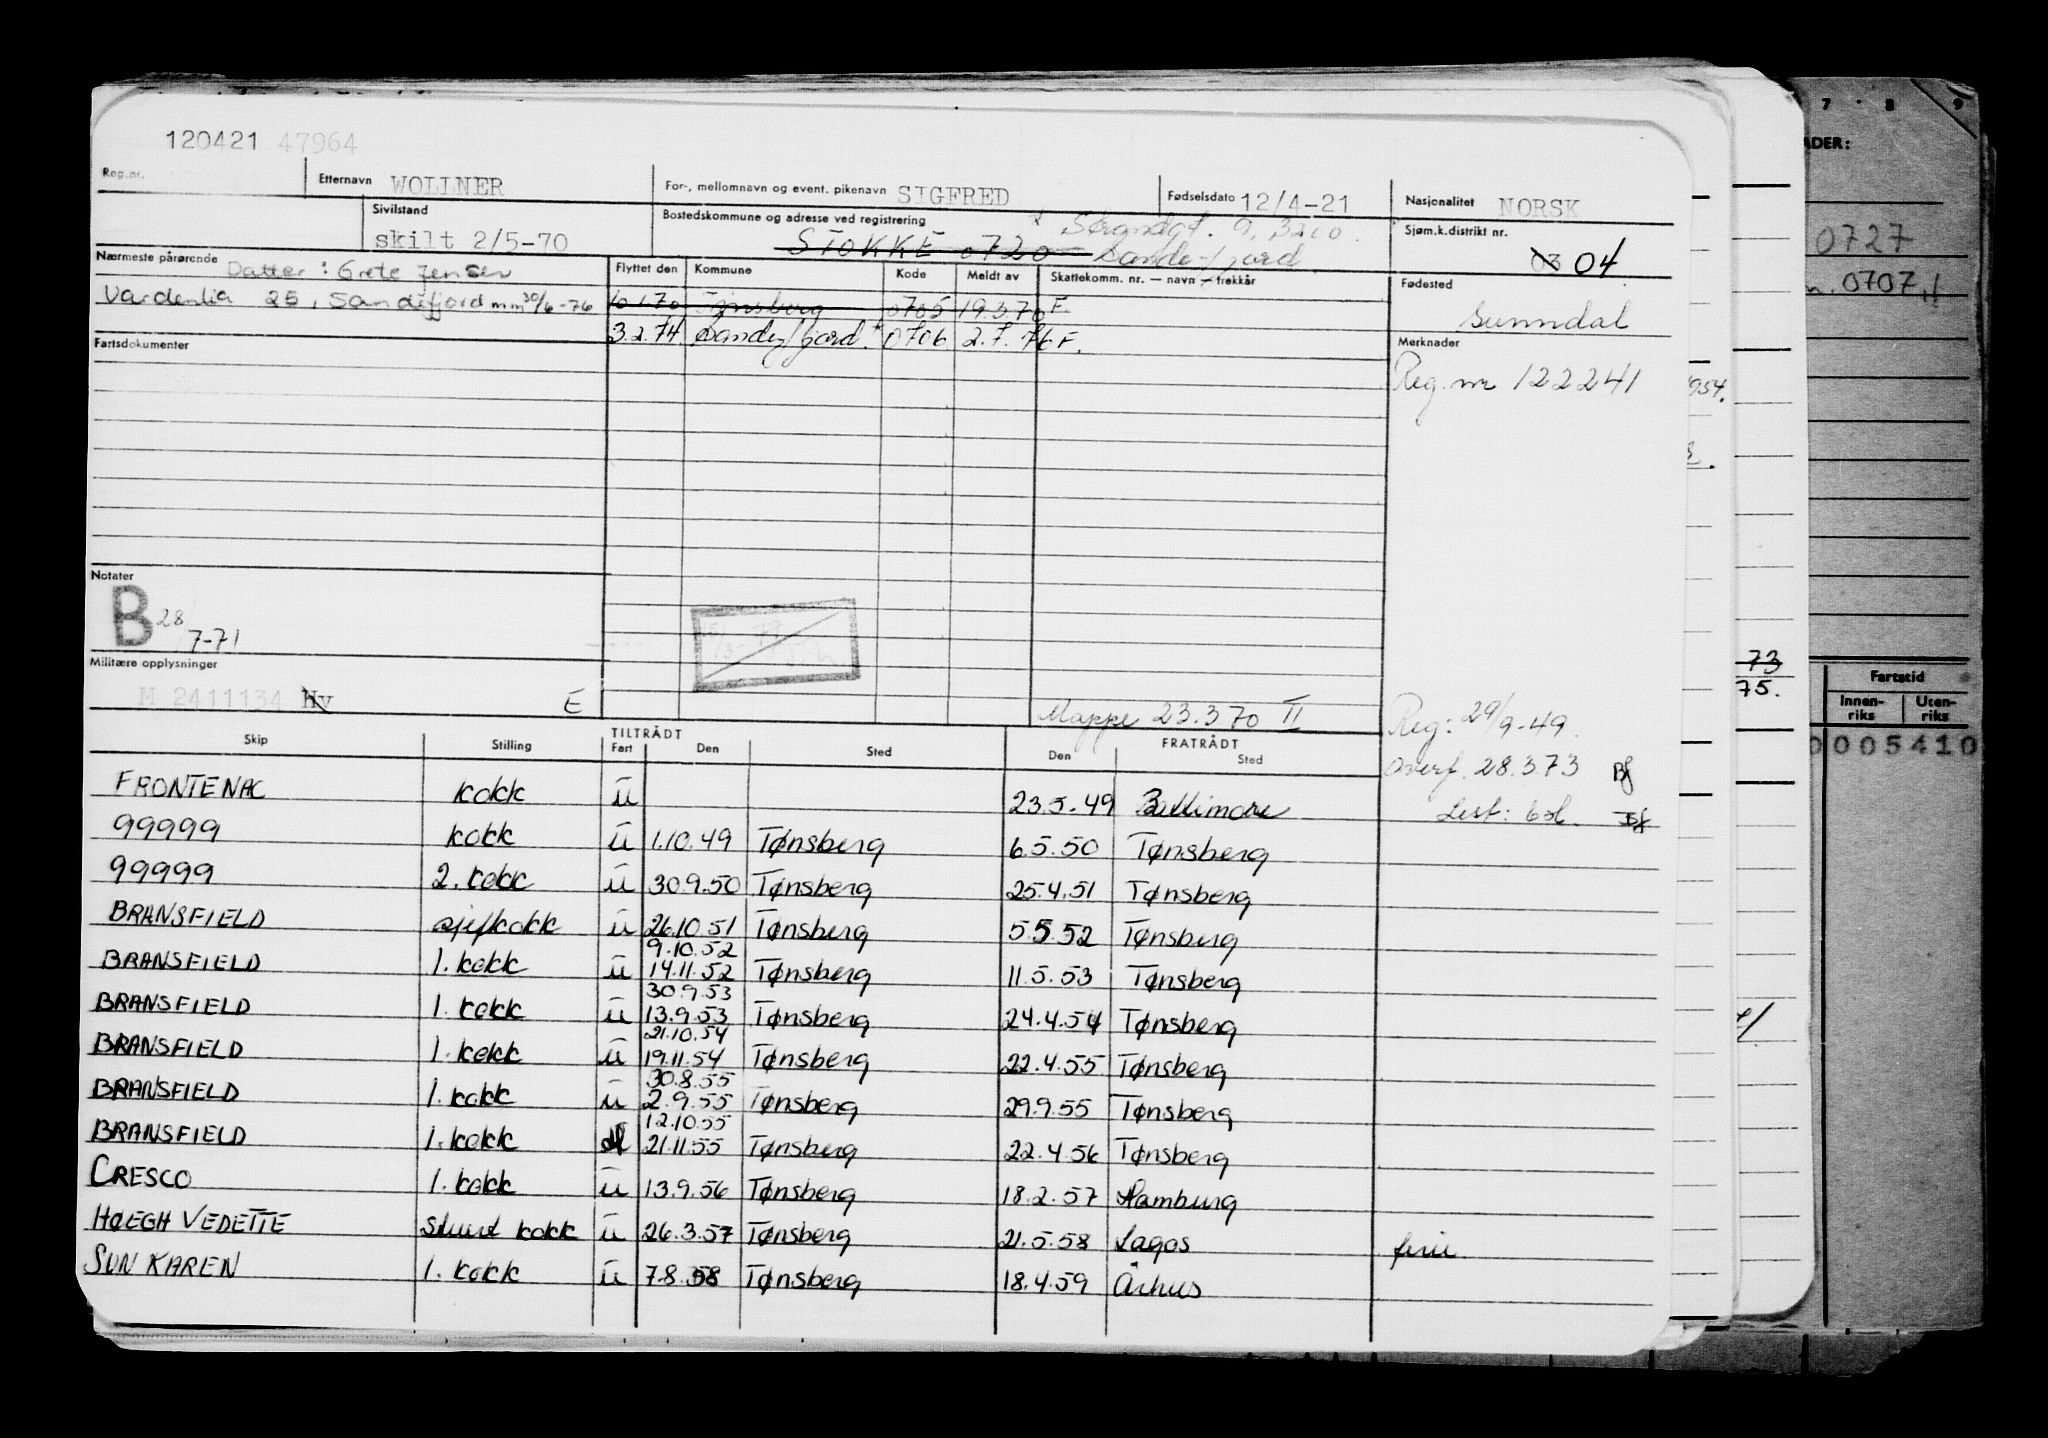 120421 47964
Reg.nr. Etternavn WOLLNER For-, mellomnavn og event. pikenavn SIGFRED Fødselsdato 12/4-21 Nasjonalitet NORSK
Sivilstand skilt 2/5-70 Bostedskommune og adresse ved registrering STOKKE 0720 9, 3200 Sandefjord Sjøm.k.distrikt nr. 03 04
Nærmeste pårørende Datter: Grete Jensen
Vardenlia 25, Sandefjord 30/6-76
Flyttet den Kommune Kode Meldt av Skattekomm. nr. – navn – trekkår
10.1.70 Tønsberg 0705 19.3.70 F.
3.2.74 Sandefjord * 0706 2.7.76 F.
Fødested
Sunndal
Fartsdokumenter
Merknader
Reg. nr 122241
Notater
B 28/7-71
Militære opplysninger
M 2411134 Hv E
Mappe 23.3.70 II
Reg: 29/9-49.
Overf. 28.3.73 Bf
Skip Stilling TILTRÅDT Fart Den Sted FRATRÅDT Den Sted
FRONTENAC kokk ü 23.5.49 Baltimore
99999 kokk ü 1.10.49 Tønsberg 6.5.50 Tønsberg
99999 2. kokk ü 30.9.50 Tønsberg 25.4.51 Tønsberg
BRANSFIELD sjefkokk ü 26.10.51 Tønsberg 5.5.52 Tønsberg
9.10.52
BRANSFIELD 1. kokk ü 14.11.52 Tønsberg 11.5.53 Tønsberg
30.9.53
BRANSFIELD 1. kokk ü 13.9.53 Tønsberg 24.4.54 Tønsberg
21.10.54
BRANSFIELD 1. kokk ü 19.11.54 Tønsberg 22.4.55 Tønsberg
30.8.55
BRANSFIELD 1. kokk ü 2.9.55 Tønsberg 29.9.55 Tønsberg
12.10.55
BRANSFIELD 1. kokk 21.11.55 Tønsberg 22.4.56 Tønsberg
CRESCO 1. kokk ü 13.9.56 Tønsberg 18.2.57 Hamburg
HØEGH VEDETTE stuert kokk ü 26.3.57 Tønsberg 21.5.58 Lagos ferie
SUN KAREN 1. kokk ü 7.8.58 Tønsberg 18.4.59 Århus
7 8 9
ADER:
0727
0707
1954.
73
75.
Fartstid
Innen-riks Uten-riks
0005410